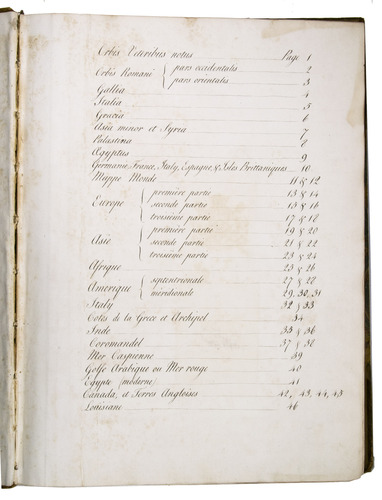 Orbis Veteribus notus Page 1
Orbis Romani { pars occidentalis 2
pars orientalis 3
Gallia 4
Italia 5
Gracia 6
Asia minor et Syria 7
Palastina 8
Ægyptus 9
Germanie, France, Italy, Espagne & Isles Brittaniques 10
Mappe Monde 11 & 12
Europe { première partie 13 & 14
seconde partie 15 & 16
troisième partie 17 & 18
Asie { première partie 19 & 20
seconde partie 21 & 22
troisième partie 23 & 24
Afrique 25 & 26
Amerique { septentrionale 27 & 28
méridionale 29, 30, 31
Italy 32 & 33
Cotes de la Grece et Archipel 34
Inde 35 & 36
Coromandel 37 & 38
Mer Caspienne 39
Golfe Arabique ou Mer rouge 40
Egypte (moderne) 41
Canada, et Terres Angloises 42, 43, 44, 45
Louisiane 46